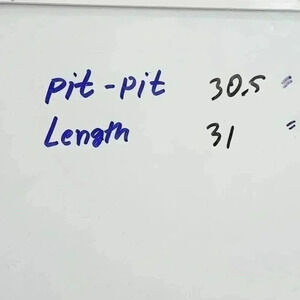 Pit-pit 30.5 "
Length 31 "